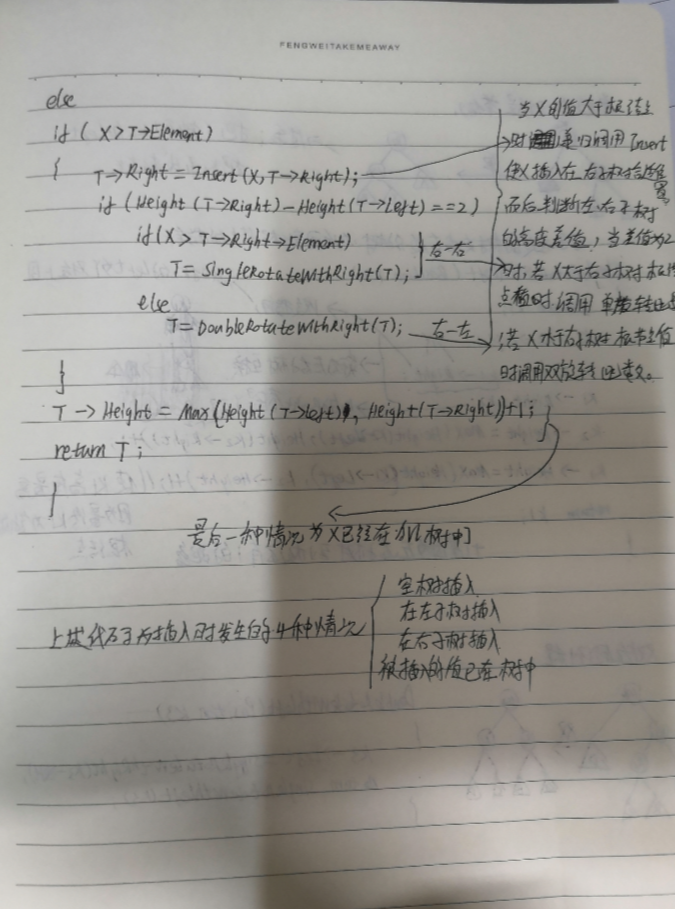 PENGWEITAKEMEAWAY
else
if ( X>T→Element)
{ T→Right = Insert(X, T→Right);
if (Height (T→Right) - Height (T→Left) ==2)
if(X > T→Right→Element)
T = SingleRotateWithRight(T);
右-右
else
T = DoubleRotateWithRight(T);
右-左
}
T → Height = Max(Height (T→Left), Height(T→Right))+1;
return T;
}
当X的值大于根结点
时 递归调用 Insert
使X插入在右子树合适位置,
而后判断左右子树
的高度差值,当差值为2
时,若X大于右子树根结
点值时,调用单旋转
;若X小于右子树根节点值
时调用双旋转
最后一种情况为X已经在AVL树中
上述代码为插入时发生的4种情况
空树插入
在左子树插入
在右子树插入
被插入的值已在树中